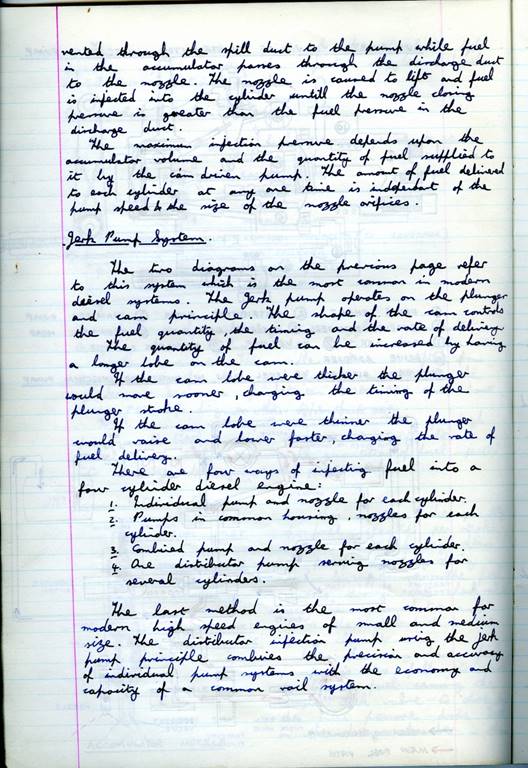 vented through the spill duct to the pump while fuel
in the accumulator passes through the discharge duct
to the nozzle. The nozzle is caused to lift and fuel
is injected into the cylinder untill the nozzle closing
pressure is greater than the fuel pressure in the
discharge duct.
The maximum injection pressure depends upon the
accumulator volume and the quantity of fuel supplied to
it by the cam driven pump. The amount of fuel delivered
to each cylinder at any one time is independant of the
pump speed & the size of the nozzle orifices.
Jerk Pump System.
The two diagrams on the previous page refer
to this system which is the most common in modern
diesel systems. The Jerk pump operates on the plunger
and cam principle. The shape of the cam controls
the fuel quantity, the timing and the rate of delivery.
The quantity of fuel can be increased by having
a longer lobe on the cam.
If the cam lobe were thicker the plunger
would move sooner, changing the timing of the
plunger stroke.
If the cam lobe were thinner the plunger
would raise and lower faster, changing the rate of
fuel delivery.
There are four ways of injecting fuel into a
four cylinder diesel engine:
1. Individual pump and nozzle for each cylinder.
2. Pumps in common housing, nozzles for each
cylinder.
3. Combined pump and nozzle for each cylinder.
4. One distributor pump serving nozzles for
several cylinders.
The last method is the most common for
modern high speed engines of small and medium
size. The distributor injection pump using the jerk
pump principle combines the precision and accuracy
of individual pump systems with the economy and
capacity of a common rail system.